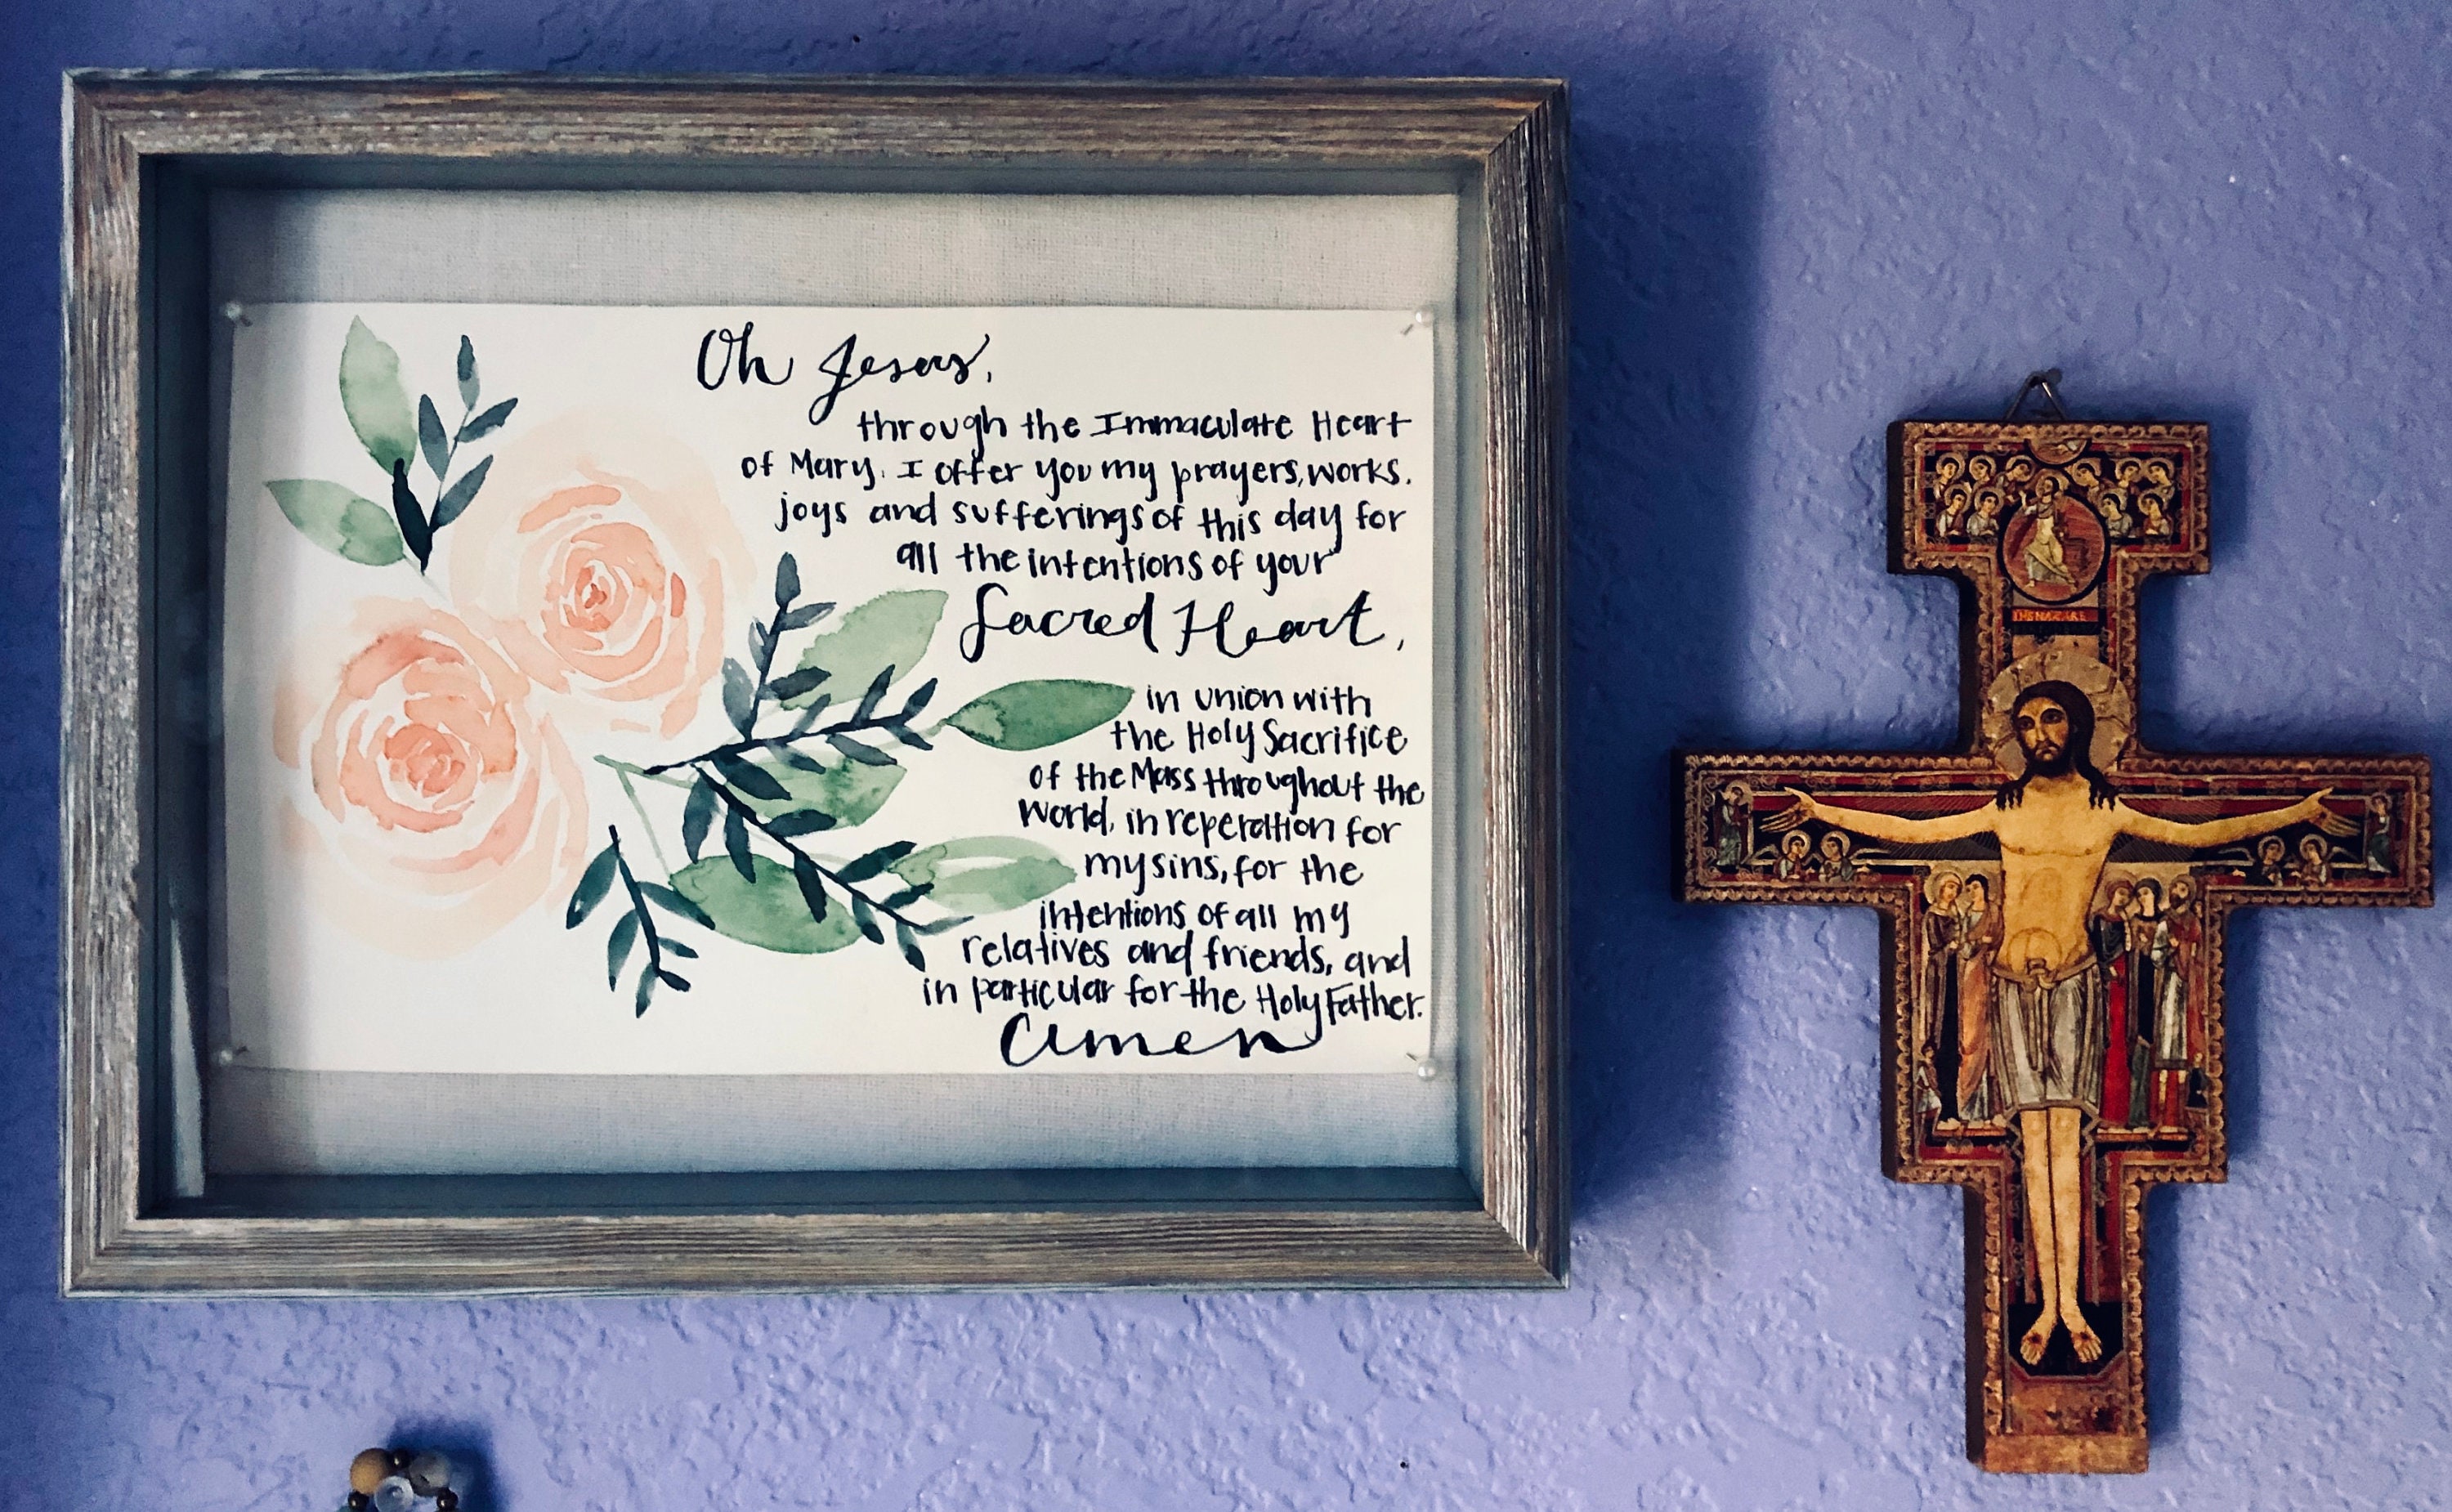 Oh Jesus,
through the Immaculate Heart
of Mary, I offer you my prayers, works,
joys and sufferings of this day for
all the intentions of your
Sacred Heart,
in union with
the Holy Sacrifice
of the Mass throughout the
World, in reperation for
my sins, for the
intentions of all my
relatives and friends, and
in particular for the Holy Father.
Amen
IHS NAZARE